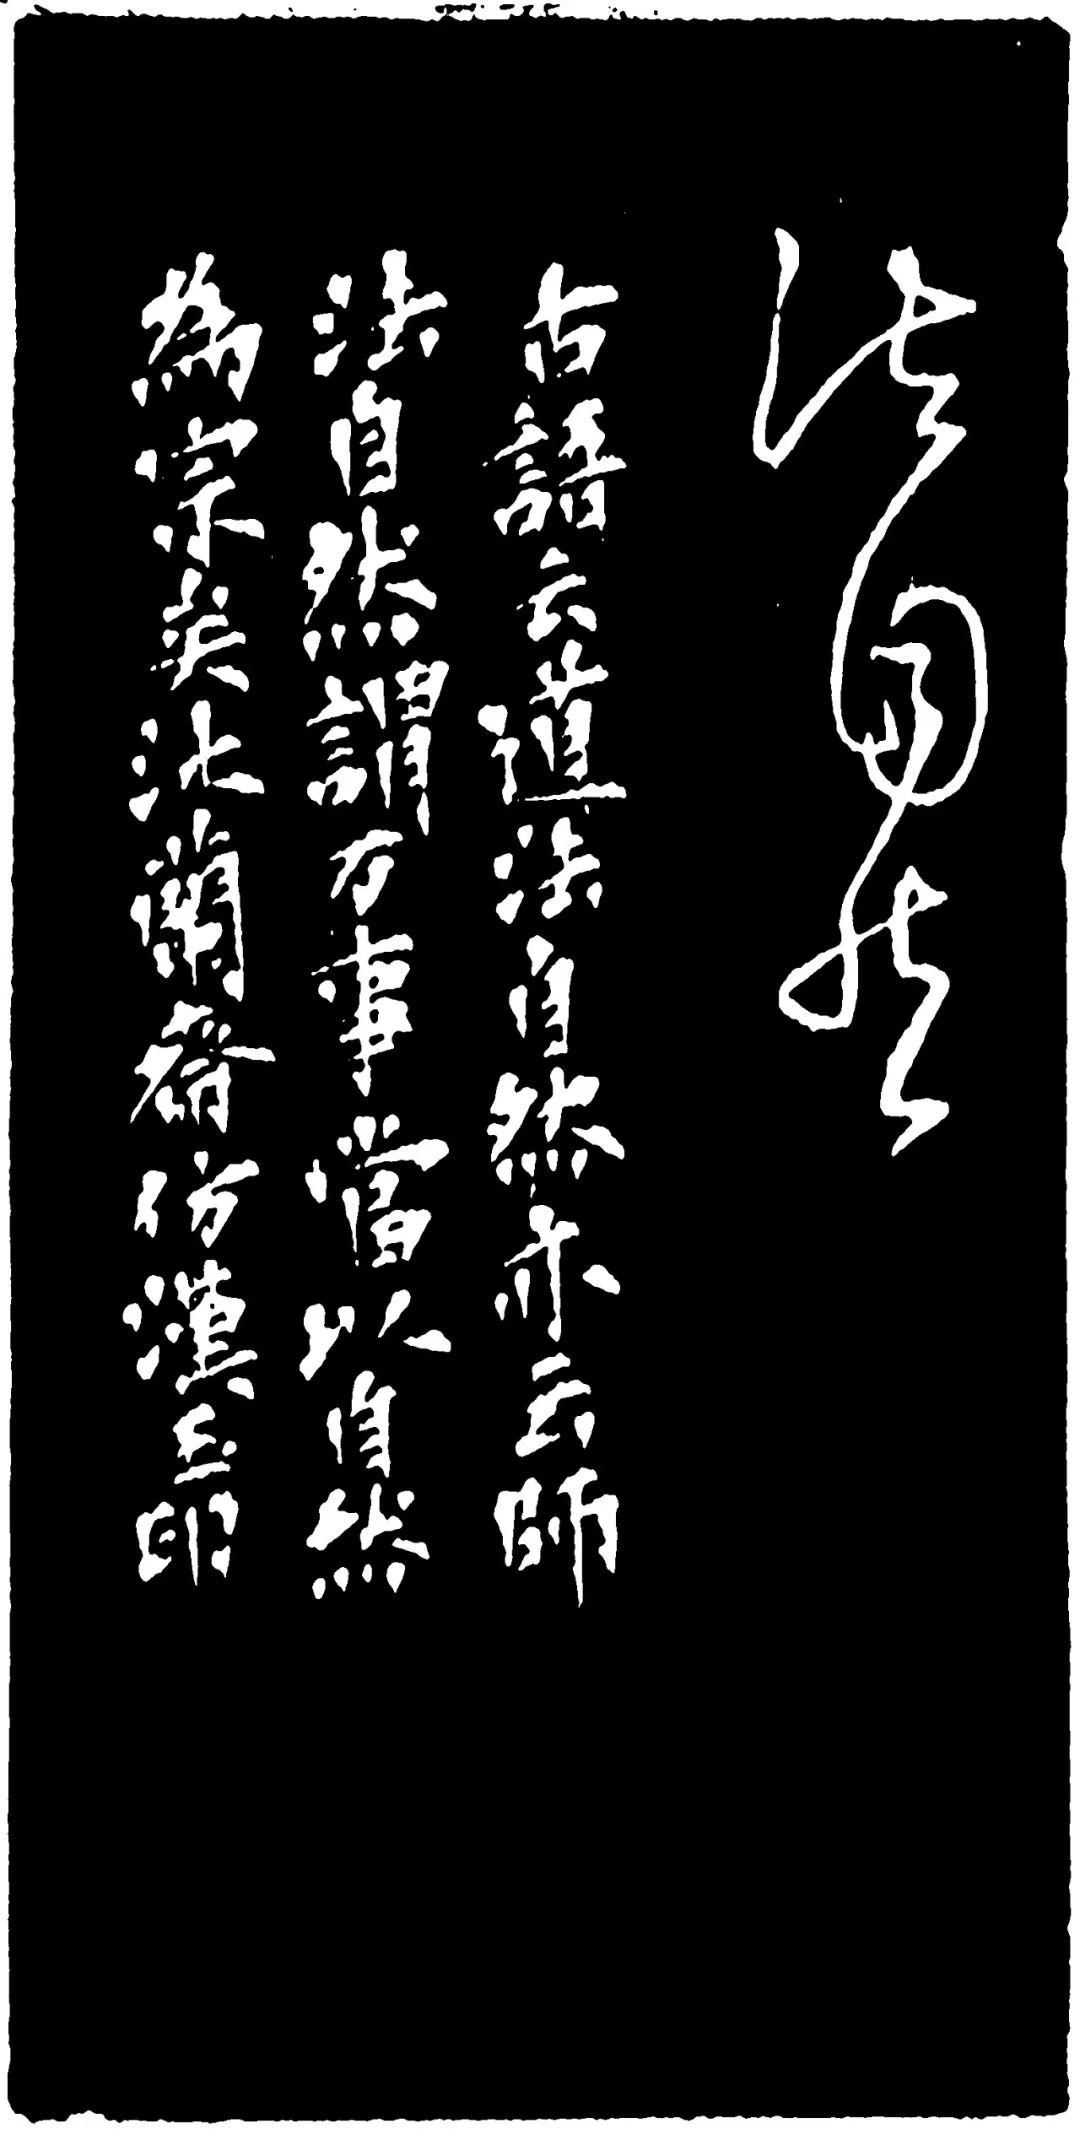 法自然
古語云道法自然亦云師
法自然謂万事當以自然
為宗矣沈蘭齋仿漢玉印